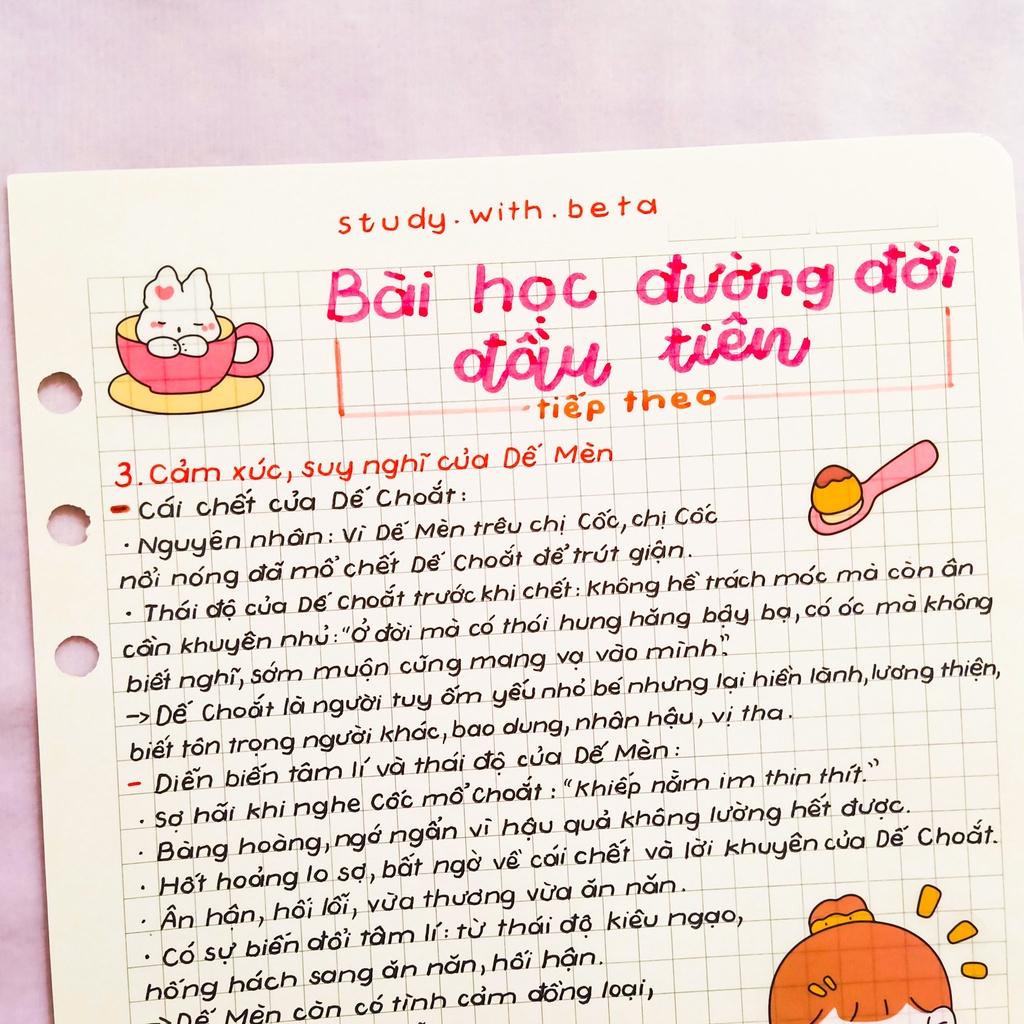 study.with.beta
Bài học đường đời
đầu tiên
tiếp theo
3. Cảm xúc, suy nghĩ của Dế Mèn
- Cái chết của Dế Choắt:
• Nguyên nhân: Vì Dế Mèn trêu chị Cốc, chị Cốc
nổi nóng đã mổ chết Dế Choắt để trút giận.
• Thái độ của Dế Choắt trước khi chết: không hề trách móc mà còn ân
cần khuyên nhủ: "ở đời mà có thói hung hăng bậy bạ, có óc mà không
biết nghĩ, sớm muộn cũng mang vạ vào mình".
-> Dế Choắt là người tuy ốm yếu nhỏ bé nhưng lại hiền lành, lương thiện,
biết tôn trọng người khác, bao dung, nhân hậu, vị tha.
- Diễn biến tâm lí và thái độ của Dế Mèn:
• Sợ hãi khi nghe Cốc mổ Choắt: "Khiếp nằm im thin thít."
• Bàng hoàng, ngớ ngẩn vì hậu quả không lường hết được.
• Hốt hoảng lo sợ, bất ngờ về cái chết và lời khuyên của Dế Choắt.
• Ân hận, hối lỗi, vừa thương vừa ăn năn.
• Có sự biến đổi tâm lí: từ thái độ kiêu ngạo,
hống hách sang ăn năn, hối hận.
-> Dế Mèn còn có tình cảm đồng loại,